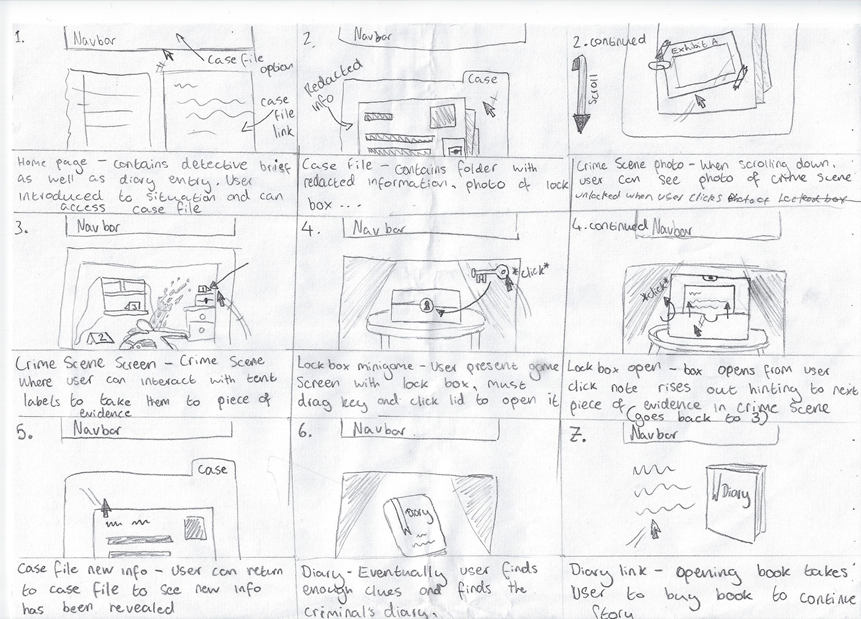 1.
Navbar
Case file
option
case
file
link
Home page - contains detective brief
as well as diary entry. User
introduced to situation and can
access case file
2.
Navbar
Redacted
info
Case
Case file - Contains folder with
redacted information, photo of lock
box ...
2. continued
Scroll
Exhibit A
Crime Scene photo - When scrolling down,
user can see photo of crime scene
unlocked when user clicks photo of Locked box
3.
Navbar
1
3
2
Crime Scene Screen - Crime Scene
where user can interact with tent
labels to take them to piece of
evidence
4.
Navbar
*click*
Lock box minigame - User present game
Screen with lock box, must
drag key and click lid to open it
4. continued
Navbar
*click*
Lock box open - box opens from user
click note rises out hinting to next
piece of evidence in crime scene
(goes back to 3)
5.
Navbar
Case
Case file new info - User can return
to case file to see new info
has been revealed
6.
Navbar
Diary
Diary - Eventually user finds
enough clues and finds the
criminal's diary.
7.
Navbar
Diary
Diary link - opening book takes
User to buy book to continue
Story